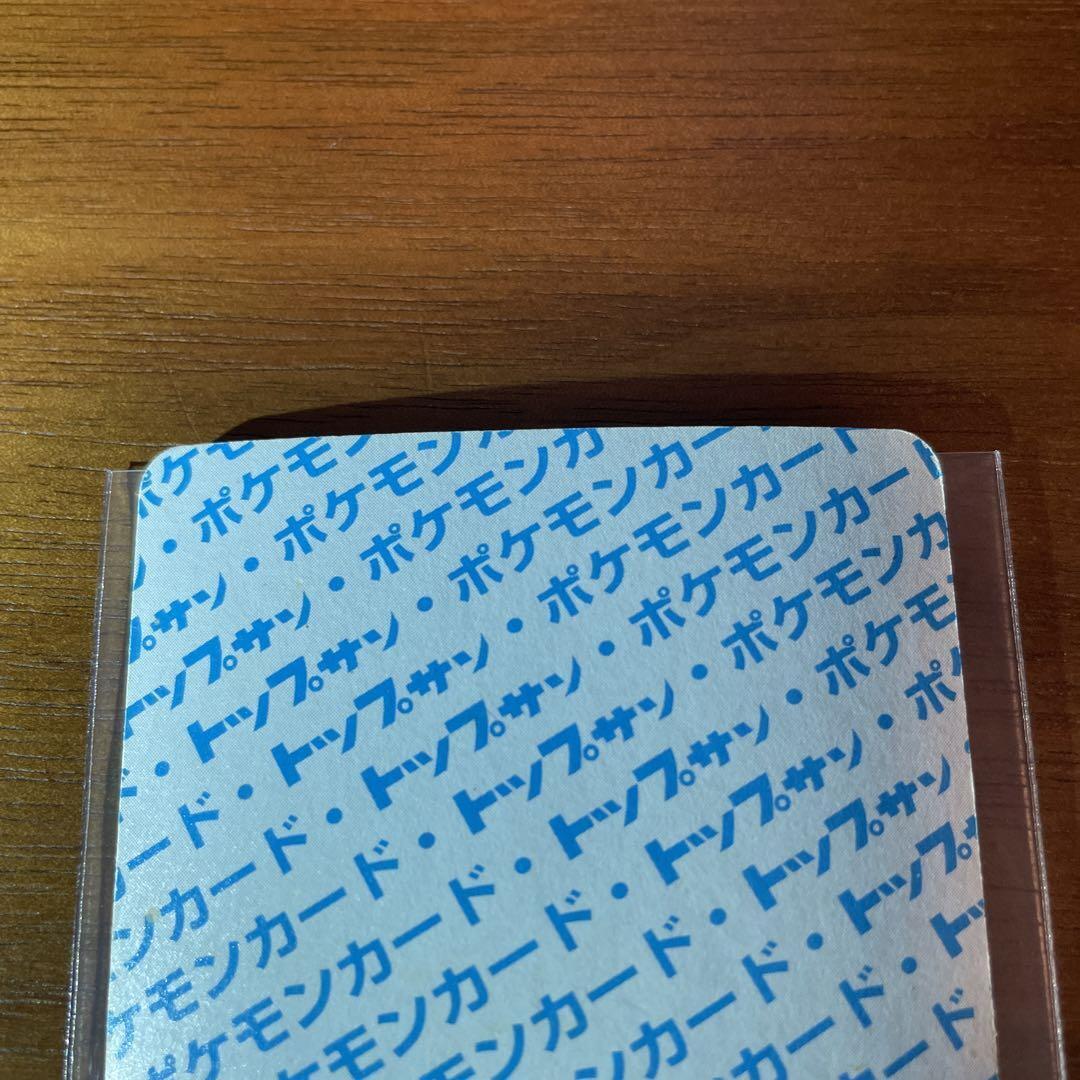 ポケモ
ン・ポケモン
プサン・ポケモンカ
トップサン・ポケモンカ
・トップサン・ポケモンカー
カード・トップサン・ポケモンカード
ンカード・トップサン・ポケモンカード
ケモンカード・トップサン・ポケモンカ
ポケモンカード・トップサン・ポケモ
ケモンカード・トップサン・ポ
ンカード・トップサン・
カード・トップ
カード・ト
ド